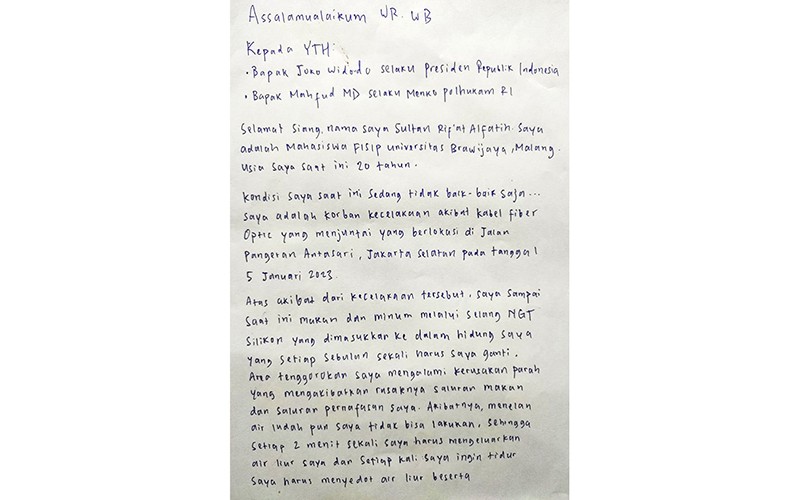 Assalamualaikum WR. WB
Kepada YTH:
• Bapak Joko Widodo selaku Presiden Republik Indonesia
• Bapak Mahfud MD selaku Menko polhukam RI
Selamat Siang, nama saya Sultan Rif'at Alfatih. Saya
adalah Mahasiswa FISIP Universitas Brawijaya, Malang.
Usia saya saat ini 20 tahun.
Kondisi saya saat ini sedang tidak baik-baik saja...
Saya adalah korban kecelakaan akibat kabel fiber
Optic yang menjuntai yang berlokasi di Jalan
Pangeran Antasari, Jakarta Selatan pada tanggal
5 Januari 2023.
Atas akibat dari kecelakaan tersebut, saya sampai
saat ini makan dan minum melalui selang NGT
Silikon yang dimasukkan ke dalam hidung saya
yang setiap sebulan sekali harus saya ganti.
Area tenggorokan saya mengalami kerusakan parah
yang mengakibatkan rusaknya saluran makan
dan saluran pernafasan saya. Akibatnya, menelan
air ludah pun saya tidak bisa lakukan, sehingga
setiap 2 menit sekali saya harus mengeluarkan
air liur saya dan setiap kali saya ingin tidur
saya harus menyedot air liur beserta